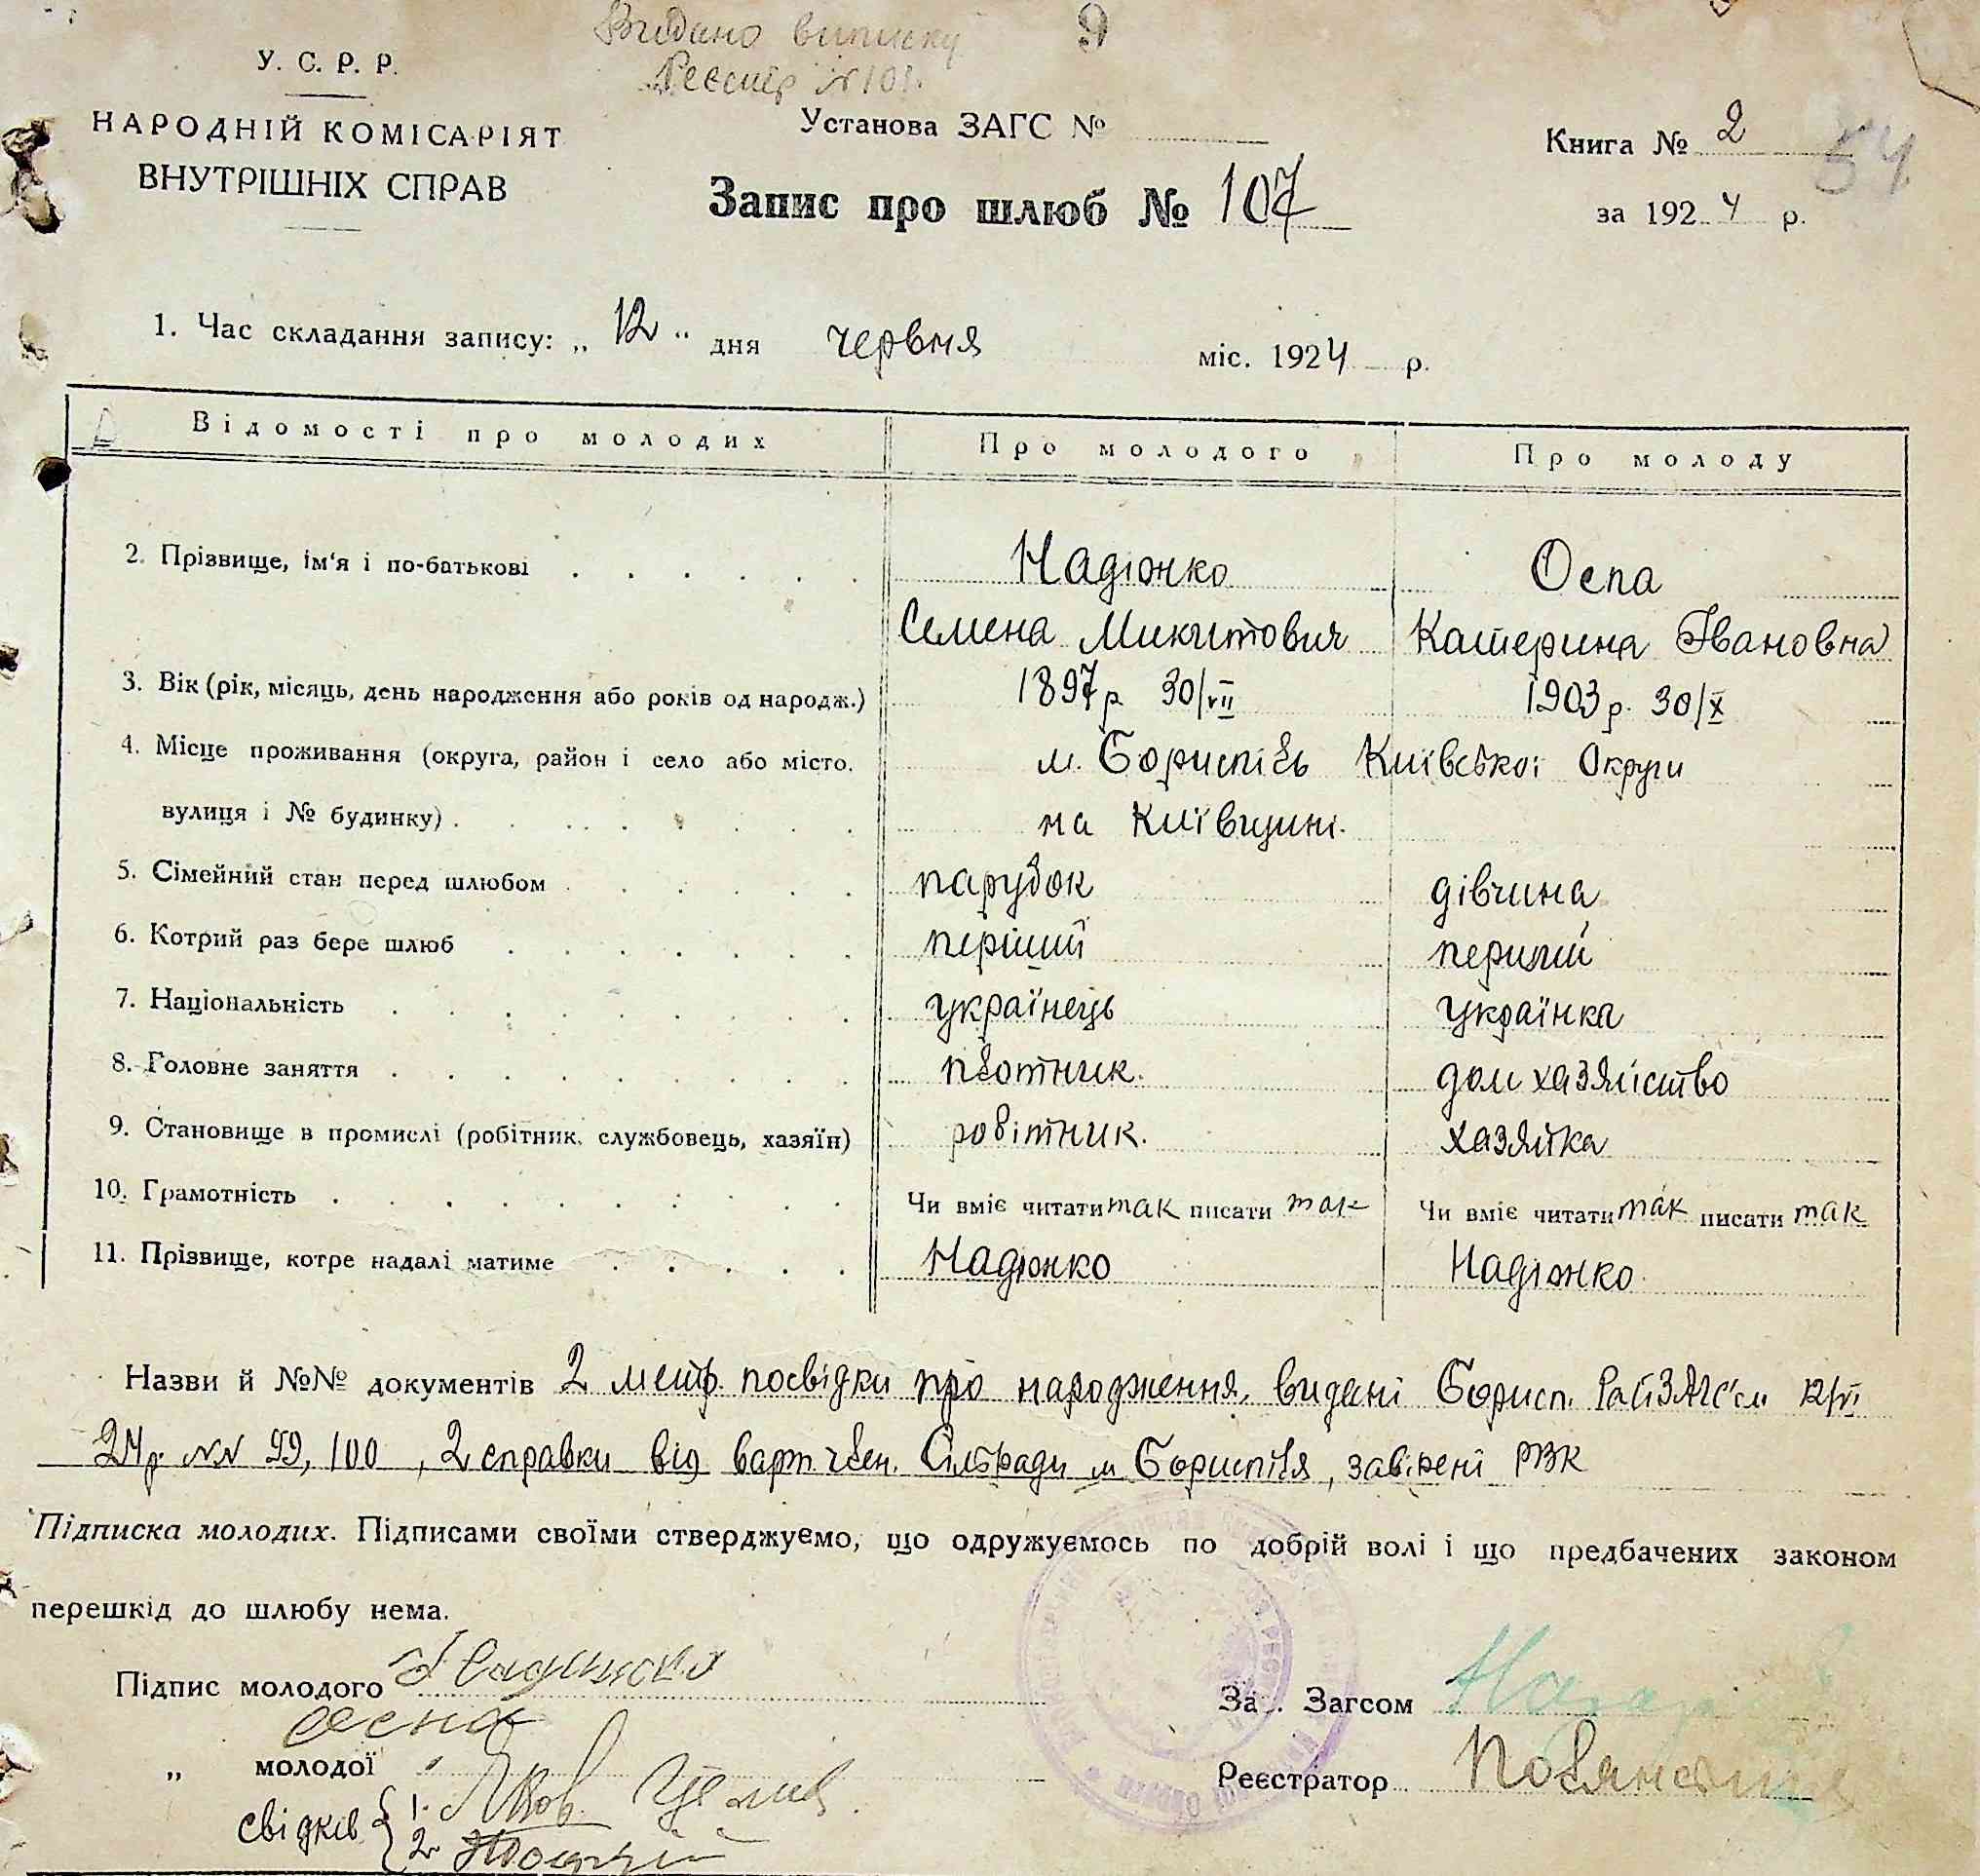 Видано виписку 9
Реєстр №101.
У. С. Р. Р.
НАРОДНІЙ КОМІСАРІЯТ
ВНУТРІШНІХ СПРАВ
Установа ЗАГС №
Запис про шлюб № 107
Книга № 2 54
за 1924 р.
1. Час складання запису: „ 12 " дня червня міс. 1924 р.
Відомості про молодих Про молодого Про молоду
2. Прізвище, ім'я і по-батькові Надюнко Оспа
Семена Микитович Катерина Івановна
3. Вік (рік, місяць, день народження або років од народж.) 1897 р 30/VII 1903 р. 30/X
4. Місце проживання (округа, район і село або місто, м. Бориспіль Київської Округи
вулиця і № будинку) на Київщині.
5. Сімейний стан перед шлюбом парубок дівчина
6. Котрий раз бере шлюб перший перший
7. Національність українець українка
8. Головне заняття плотник. дом хазяйство
9. Становище в промислі (робітник, службовець, хазяїн) робітник. хазяйка
10. Грамотність Чи вміє читати так писати так Чи вміє читати так писати так
11. Прізвище, котре надалі матиме Надюнко Надюнко
Назви й №№ документів 2 метр. посвідки про народження, видані Борисп. РайЗАГС'ом 12/VI
24р. NN 99, 100, 2 справки від варт. член. Сільради м Бориспіля, завірені РВК
Підписка молодих. Підписами своїми стверджуємо, що одружуємось по добрій волі і що предбачених законом
перешкід до шлюбу нема.
Підпис молодого
„ молодої
свідків 1. Яков
2.
За Загсом
Реєстратор